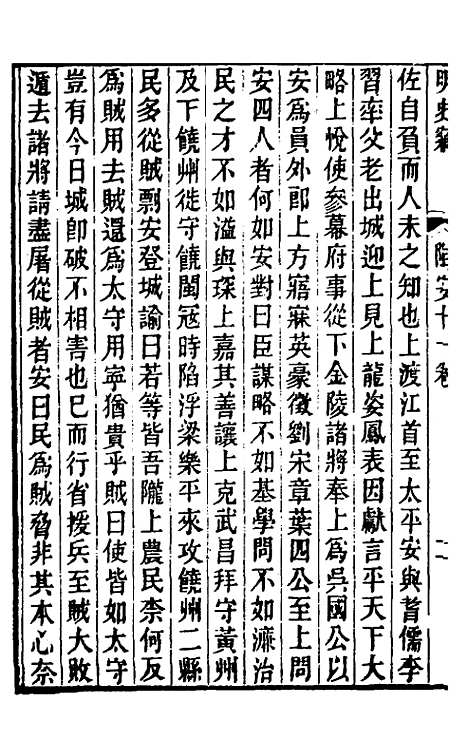 明史竊 陶安十一卷 二
佐自負而人未之知也上渡江首至太平安與耆儒李
習率父老出城迎上見上龍姿鳳表因獻言平天下大
略上悅使參幕府事從下金陵諸將奉上爲吳國公以
安爲員外郎上方寤寐英豪徵劉宋章葉四公至上問
安四人者何如安對曰臣謀略不如基學問不如濂治
民之才不如溢與琛上嘉其善讓上克武昌拜守黃州
及下饒州徙守饒閩寇時陷浮梁樂平來攻饒州二縣
民多從賊剽安登城諭曰若等皆吾隴上農民柰何反
爲賊用去賊還爲太守用寧猶貴乎賊曰使皆如太守
豈有今日城卽破不相害也已而行省援兵至賊大敗
遁去諸將請盡屠從賊者安曰民爲賊脅非其本心奈